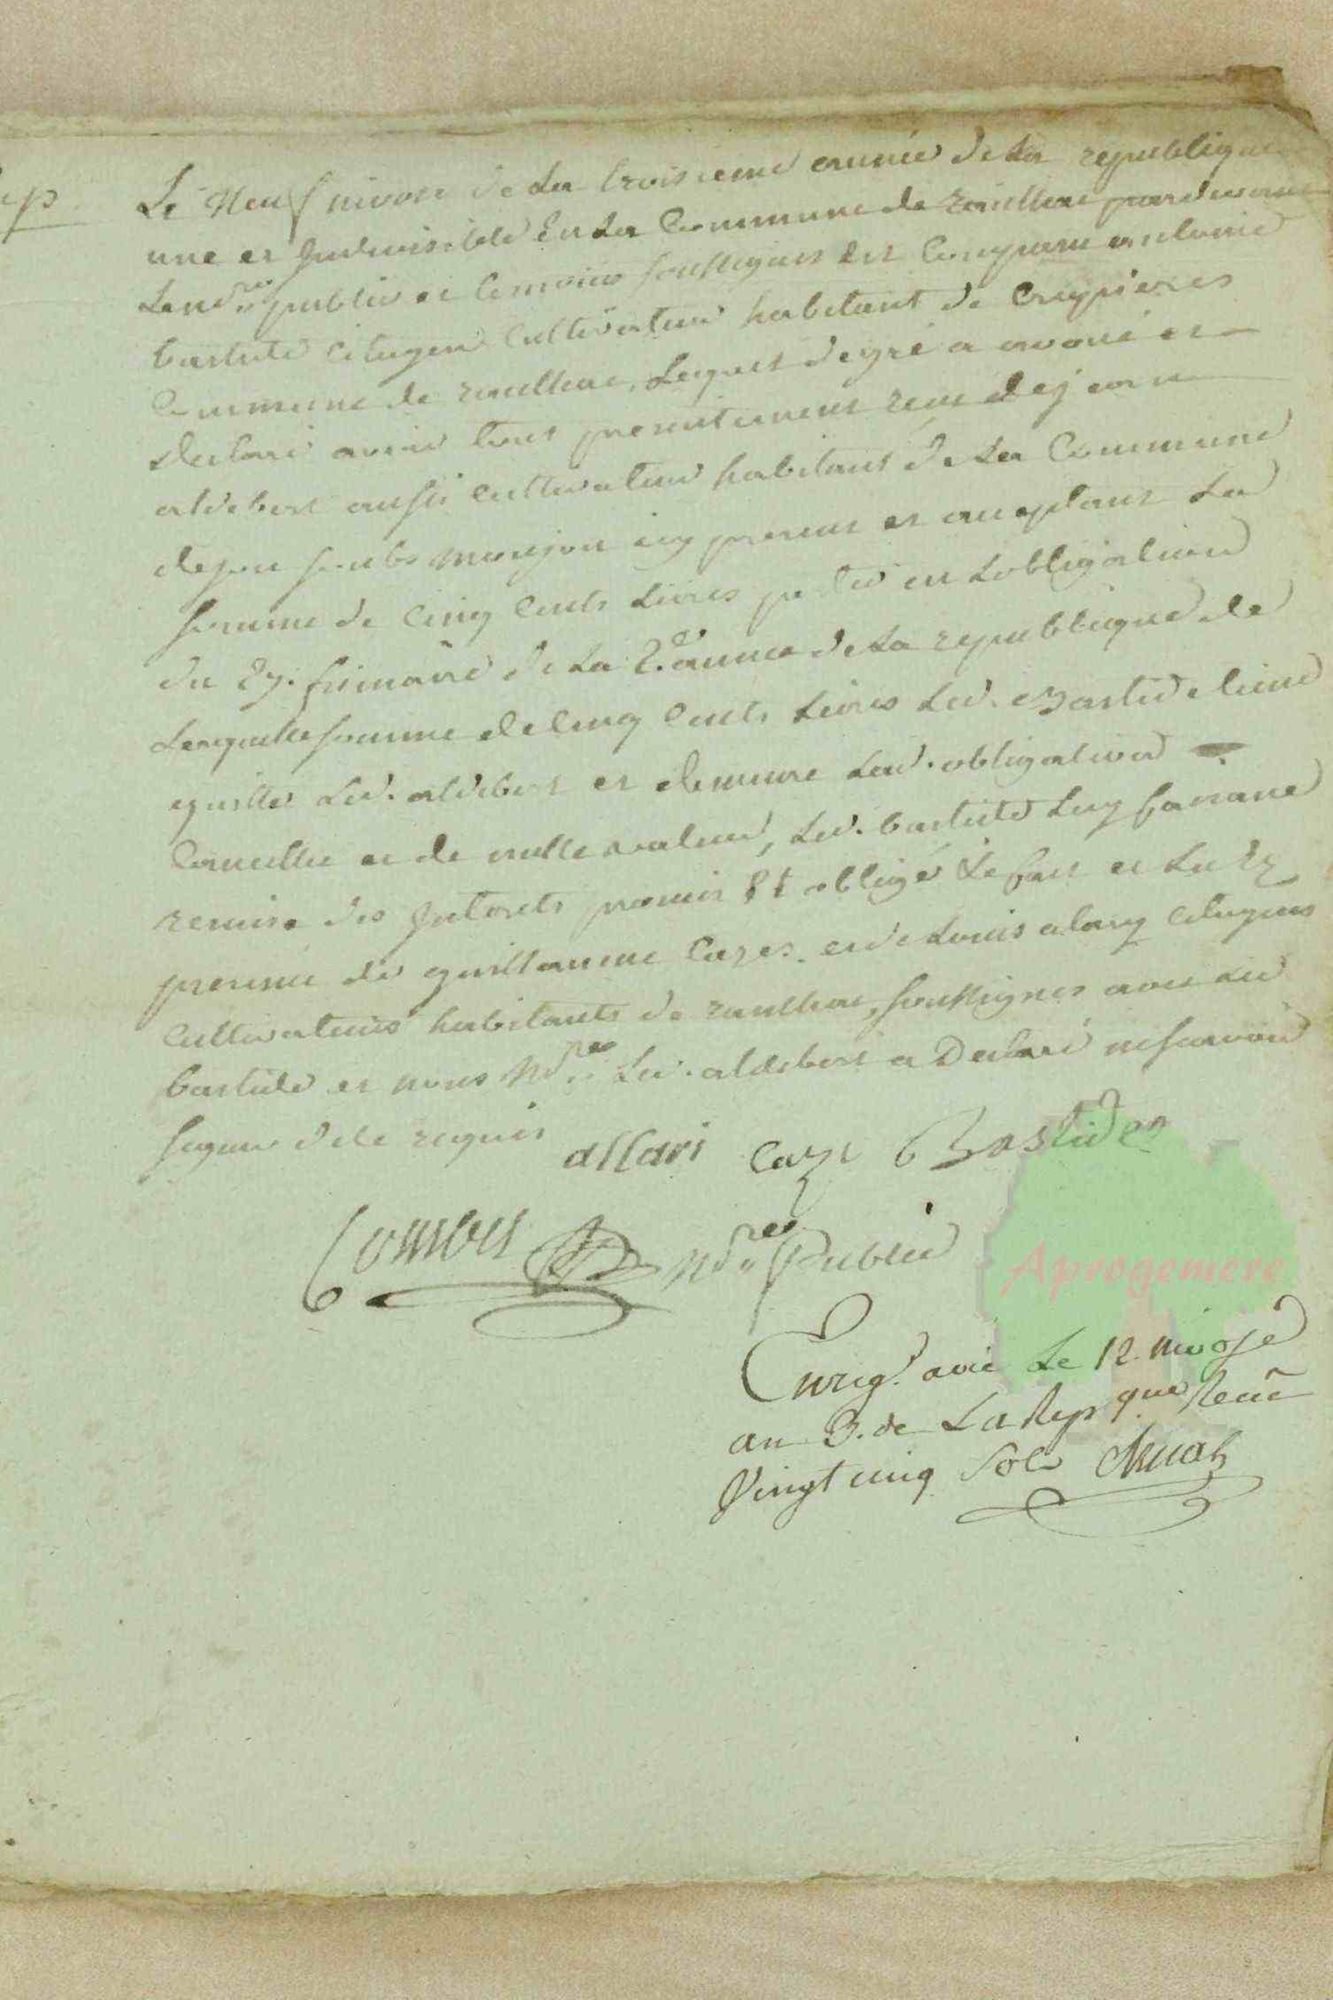 Le Neuf nivose de La troisieme année de La republique
une et Indivisible En La Commune de roulhac pardevant
Le no.re public et temoins soussignes est Comparu antoine
bastide citoyen Cultivateur habitant de Crepieres
Commune de roulhac, Lequel de gré a avoué et
declaré avoir tout presentement reçu de jean
aldebert aussi Cultivateur habitant de La Commune
de jou soubs monjou icy present et aceptant La
somme de Cinq Cents Livres portée en Lobligation
du 27. frimaire de La 2.e année de La republique de
Laquelle somme de Cinq Cents Livres Led. Bastide tient
quitte Led. aldebert et demeure Lad. obligation
Cancellée et de nulle valeur, Led. bastide Luy faisant
remise des Intorets promis et obligé Le fait et Lu En
presence de guillaume Cazes. et de Louis alary Citoyens
Cultivateurs habitants de roulhac, soussignes avec Led.
bastide et nous No.re Led. aldebert a Declaré ne scavoir
signer de Ce requis
allari Caze Bastiden
Combes No.re Public
Enrég.t avic Le 12. nivose
an 3. de La Rep que Recu
Vingt cinq Sols
Aprogemere